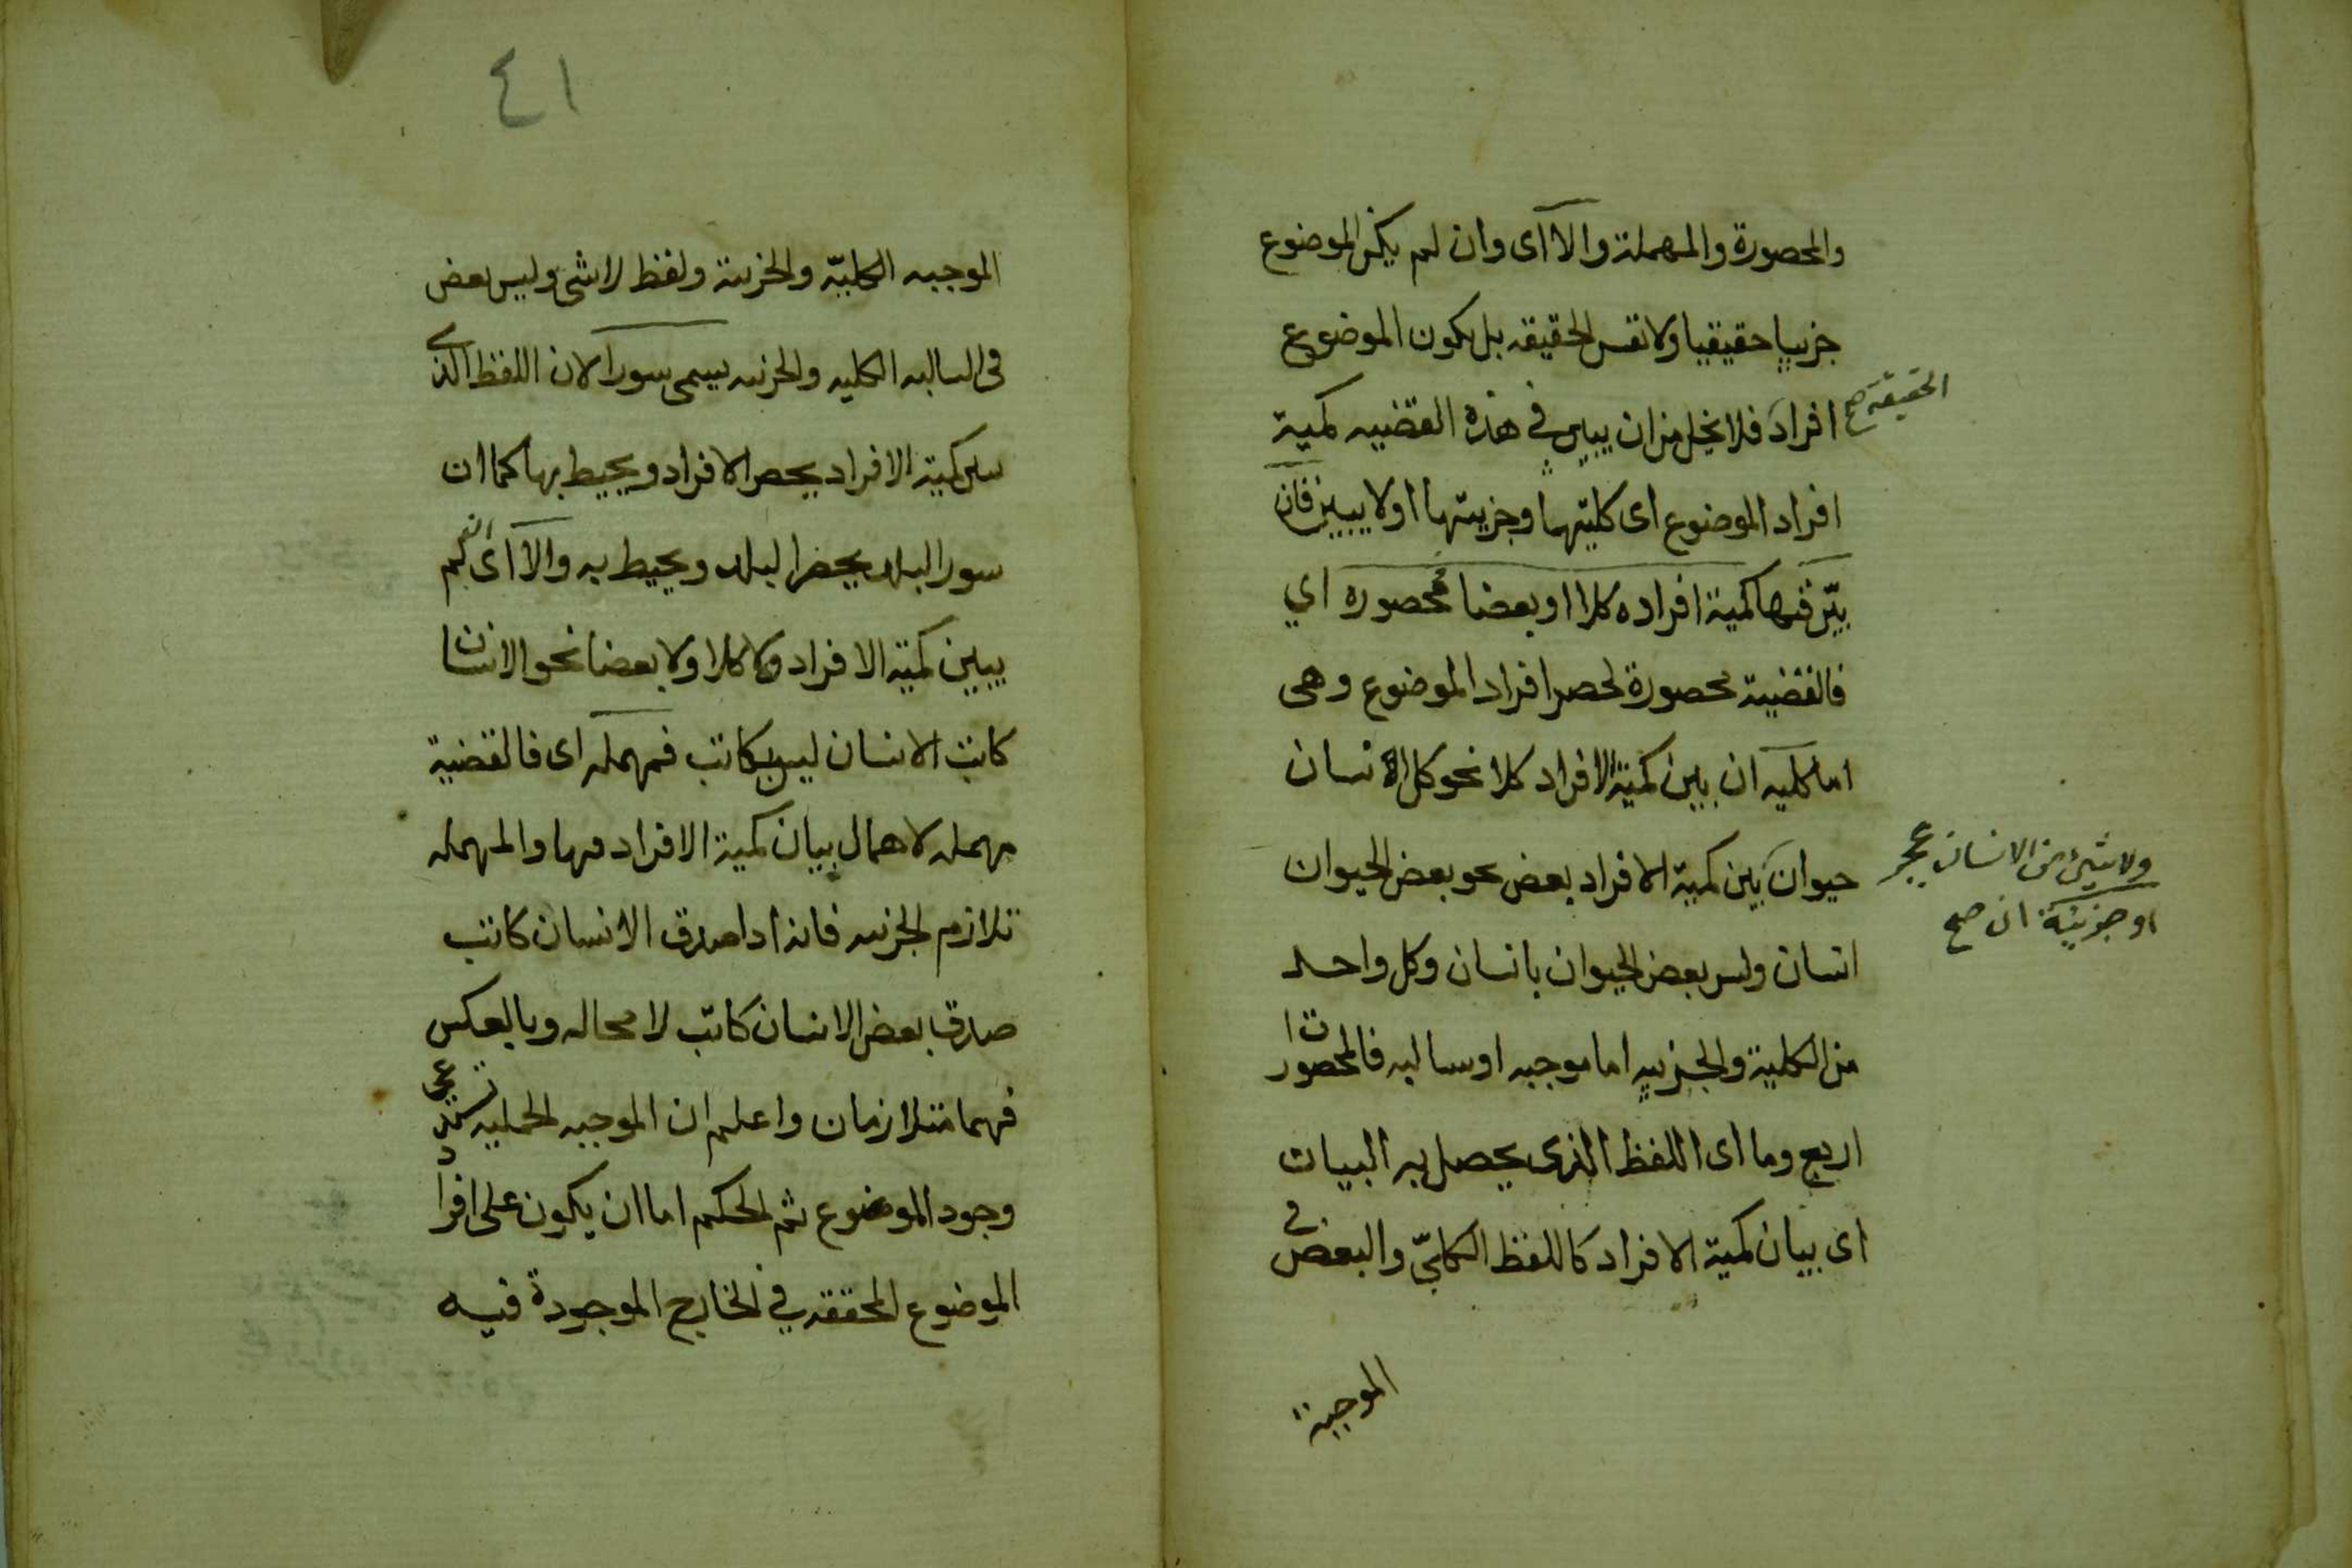 والمحصورة والمهملة والا اى وان لم يكن الموضوع
جزييا حقيقيا ولا نفس الحقيقه بل يكون الموضوع
الحقيقة صح
افراد فلا يخلو من ان يبين في هذه القضيه كمية
افراد الموضوع اى كليتها وجزيتها او لا يبين فان
بيّن فيها كمية افراده كلا او بعضا فمحصوره اي
فالقضية محصورة لحصر افراد الموضوع وهى
اما كليه ان بين كمية الافراد كلا نحو كل انسان
حيوان بين كمية الافراد بعض نحو بعض الحيوان
ولا شيئ من الانسان بحجر
او جزئية ان صح
انسان وليس بعض الحيوان بانسان وكل واحد
من الكلية والجزييه اما موجبه او سالبه فالمحصورات
اربع وما اى اللفظ الذى يحصل به البيان
اى بيان كمية الافراد كاللفظ الكلّي والبعض في
الموجبة
٤١
الموجبه الكليّه والجزية ولفظ لا شئ وليس بعض
فى السالبه الكليه والجزيه يسمى سورا لان اللفظ الذى
يبين كمية الافراد يحصر الافراد ويحيط بها كما ان
سور البلد يحصر البلد ويحيط به والا اى ان لم
يبين كمية الافراد لا كلا ولا بعضا نحو الانسان
كاتب الانسان ليس بكاتب فمهمله اى فالقضية
مهمله لاهمال بيان كمية الافراد فيها والمهمله
تلازم الجزيه فانه اذا صدق الانسان كاتب
صدق بعض الانسان كاتب لا محاله وبالعكس
فهما متلازمان واعلم ان الموجبه الحمليه تستدعي
وجود الموضوع ثم الحكم اما ان يكون على افراد
الموضوع المحققه في الخارج الموجودة فيه